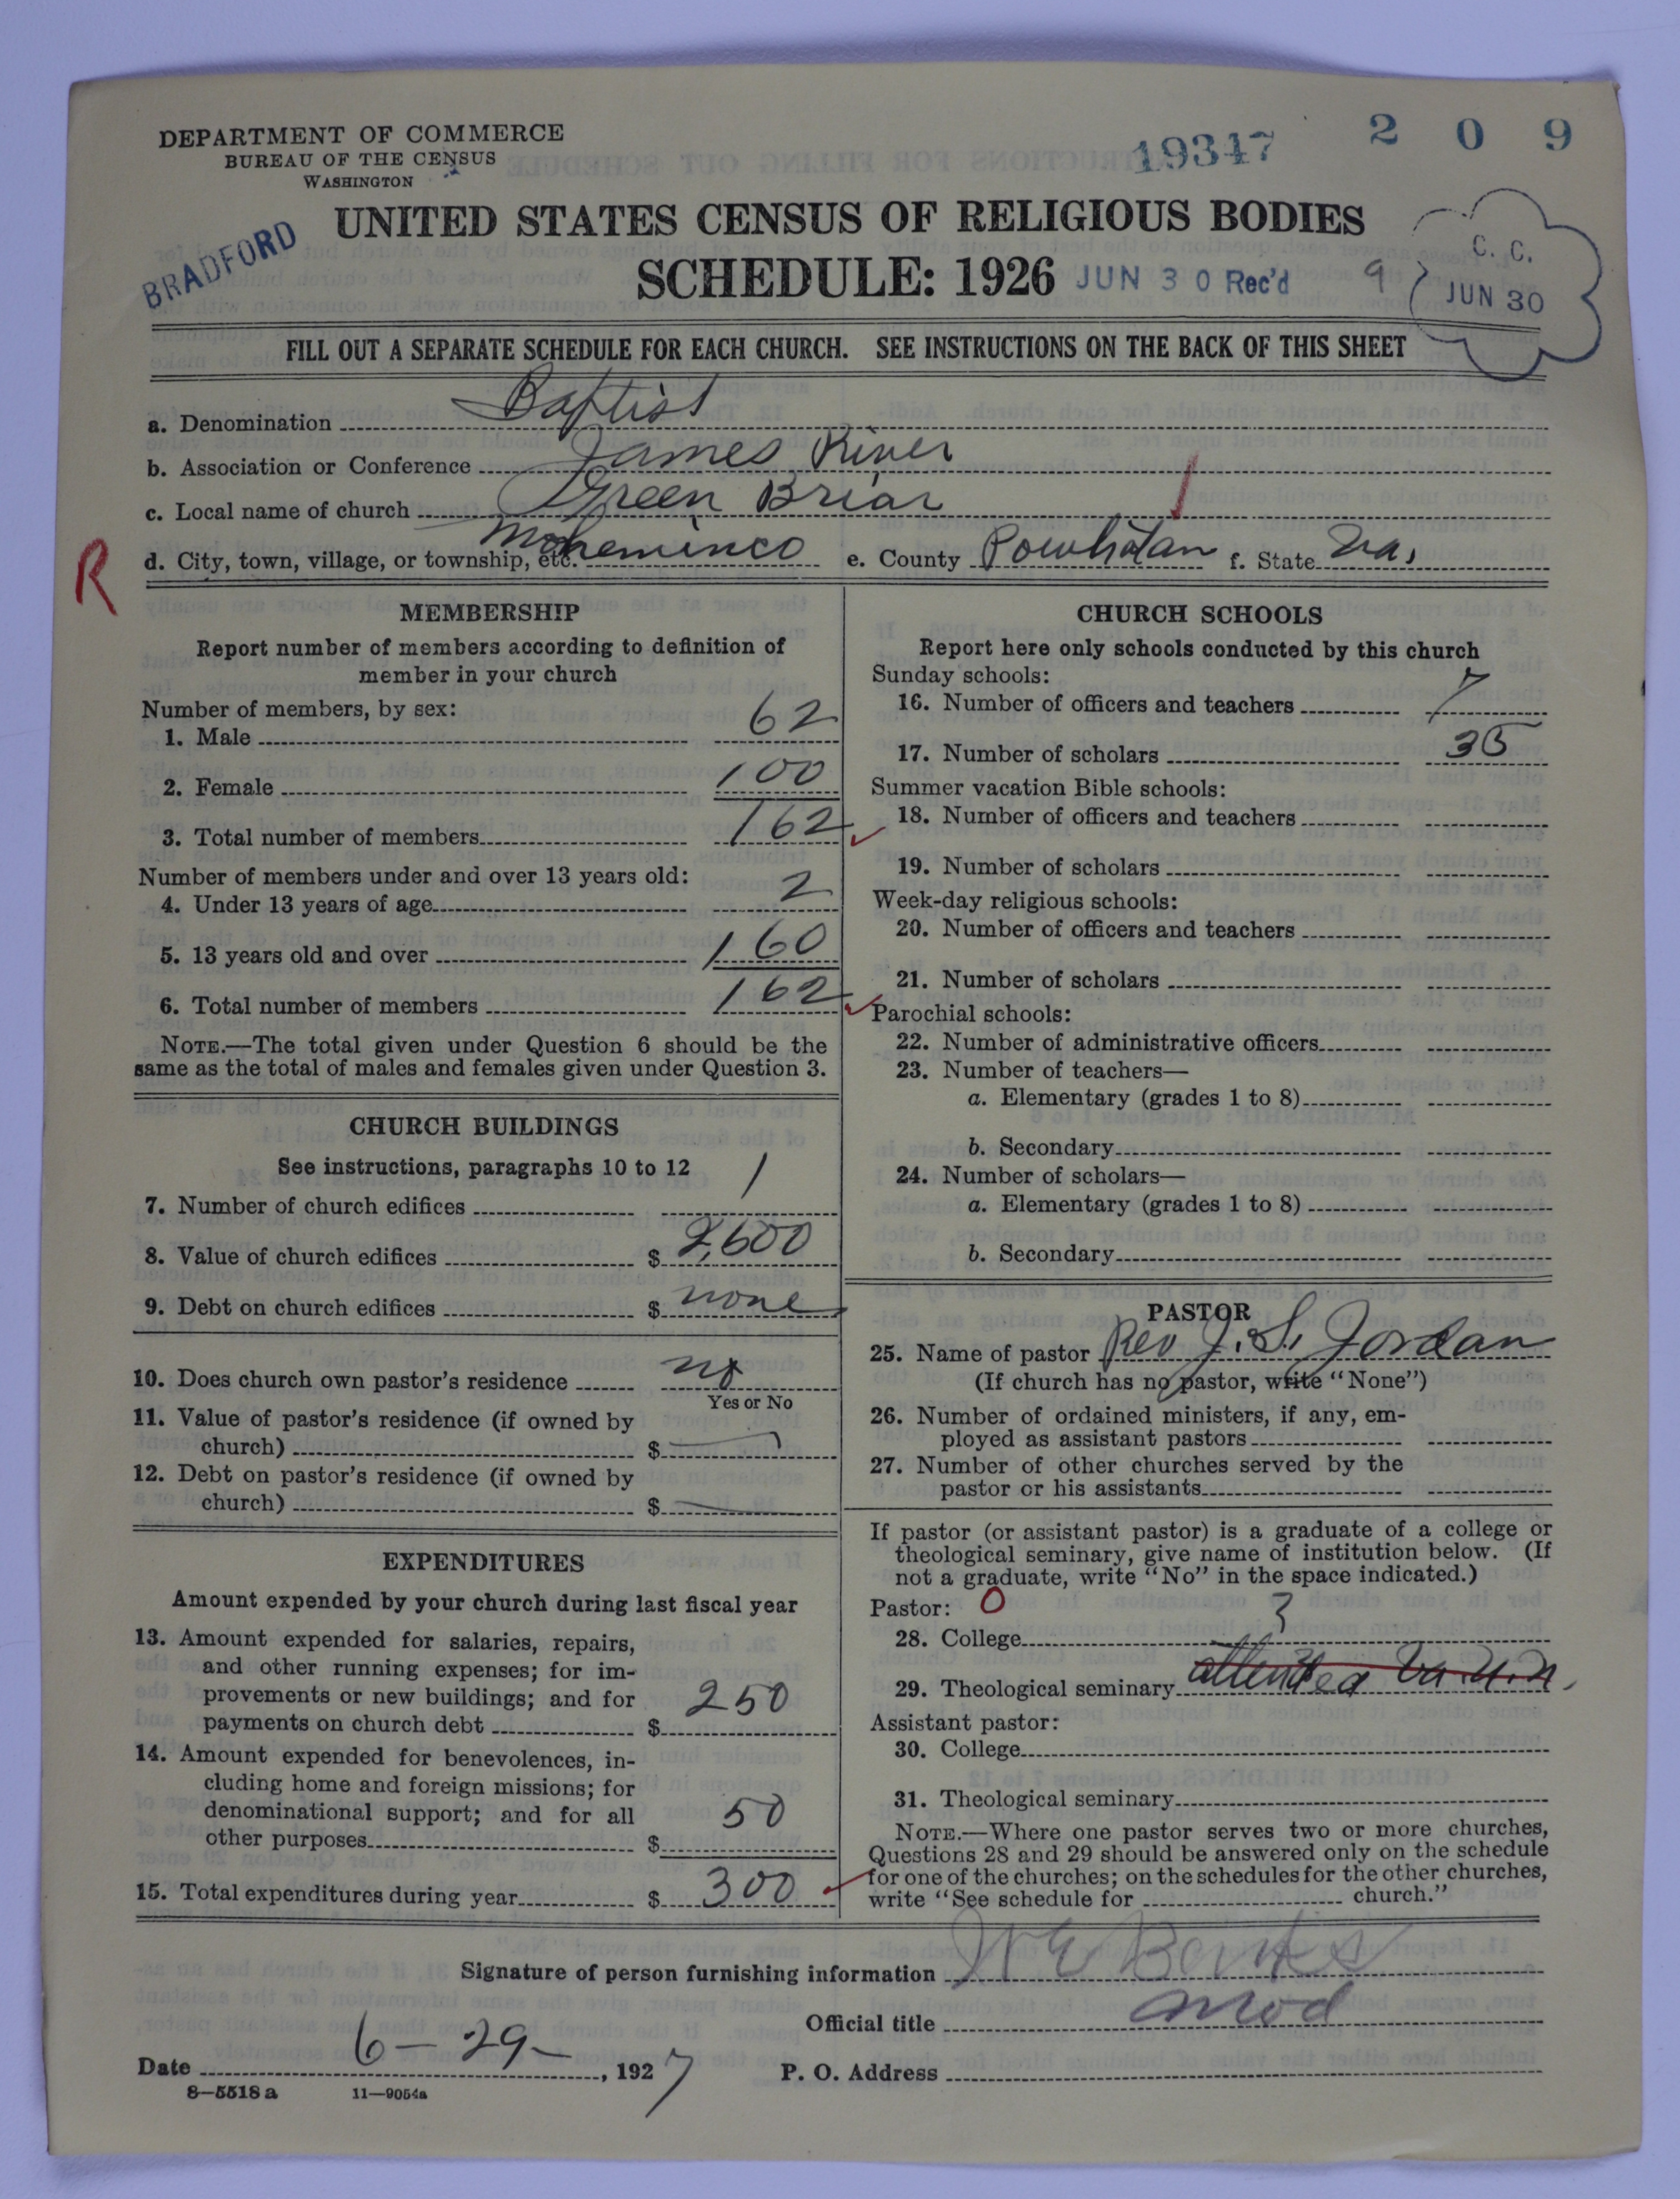 DEPARTMENT OF COMMERCE
BUREAU OF THE CENSUS
WASHINGTON
19347
2 0 9
BRADFORD
UNITED STATES CENSUS OF RELIGIOUS BODIES
SCHEDULE: 1926
JUN 30 Rec'd
9
C. C.
JUN 30
FILL OUT A SEPARATE SCHEDULE FOR EACH CHURCH. SEE INSTRUCTIONS ON THE BACK OF THIS SHEET
a. Denomination Baptist
b. Association or Conference James River
c. Local name of church Green Briar
R
d. City, town, village, or township, etc. Moheminco e. County Powhatan f. State Va.
MEMBERSHIP
Report number of members according to definition of
member in your church
Number of members, by sex:
1. Male 62
2. Female 100
3. Total number of members 162
Number of members under and over 13 years old:
4. Under 13 years of age 2
5. 13 years old and over 160
6. Total number of members 162
NOTE.—The total given under Question 6 should be the
same as the total of males and females given under Question 3.
CHURCH BUILDINGS
See instructions, paragraphs 10 to 12
7. Number of church edifices 1
8. Value of church edifices $ 2,600
9. Debt on church edifices $ none
10. Does church own pastor's residence no
Yes or No
11. Value of pastor's residence (if owned by
church) $
12. Debt on pastor's residence (if owned by
church) $
EXPENDITURES
Amount expended by your church during last fiscal year
13. Amount expended for salaries, repairs,
and other running expenses; for im-
provements or new buildings; and for
payments on church debt $ 250
14. Amount expended for benevolences, in-
cluding home and foreign missions; for
denominational support; and for all
other purposes $ 50
15. Total expenditures during year $ 300
CHURCH SCHOOLS
Report here only schools conducted by this church
Sunday schools:
16. Number of officers and teachers 7
17. Number of scholars 35
Summer vacation Bible schools:
18. Number of officers and teachers
19. Number of scholars
Week-day religious schools:
20. Number of officers and teachers
21. Number of scholars
Parochial schools:
22. Number of administrative officers
23. Number of teachers—
a. Elementary (grades 1 to 8)
b. Secondary
24. Number of scholars—
a. Elementary (grades 1 to 8)
b. Secondary
PASTOR
25. Name of pastor Rev J. S. Jordan
(If church has no pastor, write "None")
26. Number of ordained ministers, if any, em-
ployed as assistant pastors
27. Number of other churches served by the
pastor or his assistants
If pastor (or assistant pastor) is a graduate of a college or
theological seminary, give name of institution below. (If
not a graduate, write "No" in the space indicated.)
Pastor: 0
28. College ?
29. Theological seminary attended Va. U. n.
Assistant pastor:
30. College
31. Theological seminary
NOTE.—Where one pastor serves two or more churches,
Questions 28 and 29 should be answered only on the schedule
for one of the churches; on the schedules for the other churches,
write "See schedule for church."
Signature of person furnishing information W E Banks
Official title Mod
Date 6-29-, 1927 P. O. Address
8—5518 a 11—9054a